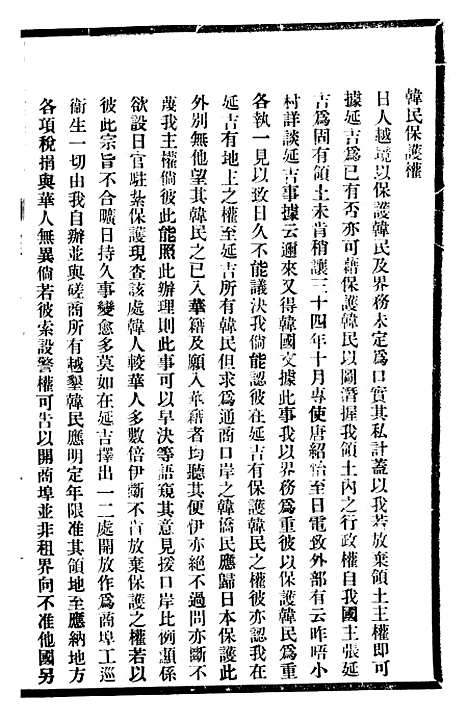 韓民保護權
日人越境以保護韓民及界務未定爲口實其私計蓋以我若放棄領土主權即可
據延吉爲已有否亦可藉保護韓民以圖潛握我領土內之行政權自我國主張延
吉爲固有領土未肯稍讓三十四年十月專使唐紹怡至日電致外部有云昨晤小
村詳談延吉事據云邇來又得韓國文據此事我以界務爲重彼以保護韓民爲重
各執一見以致日久不能議決我倘能認彼在延吉有保護韓民之權彼亦認我在
延吉有地主之權至延吉所有韓民但求爲通商口岸之韓僑民應歸日本保護此
外別無他望其韓民之已入華籍及願入華籍者均聽其便伊亦絕不過問亦斷不
蔑我主權倘彼此能照此辦理則此事可以早決等語窺其意見援口岸比例顯係
欲設日官駐紮保護現查該處韓人較華人多數倍伊斷不肯放棄保護之權若以
彼此宗旨不合曠日持久事變愈多莫如在延吉擇出一二處開放作爲商埠工巡
衞生一切由我自辦並與磋商所有越墾韓民應明定年限准其領地至應納地方
各項稅捐與華人無異倘若彼索設警權可告以開商埠並非租界向不准他國另